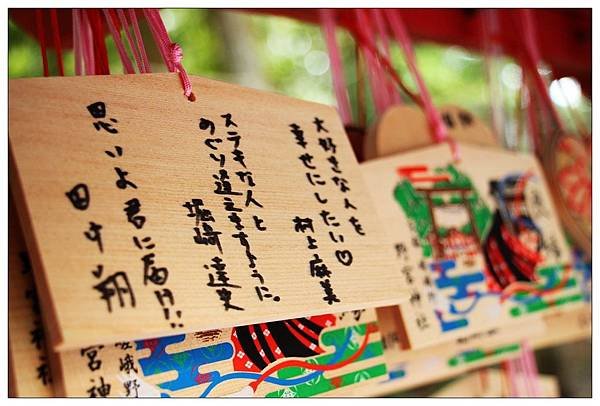 大好きな人を
幸せにしたい♡
村上麻美
ステキな人と
めぐり逢えますように。
堀崎達史
思いよ君に届け!!
田中翔
野宮神社
嵯峨野
宮神